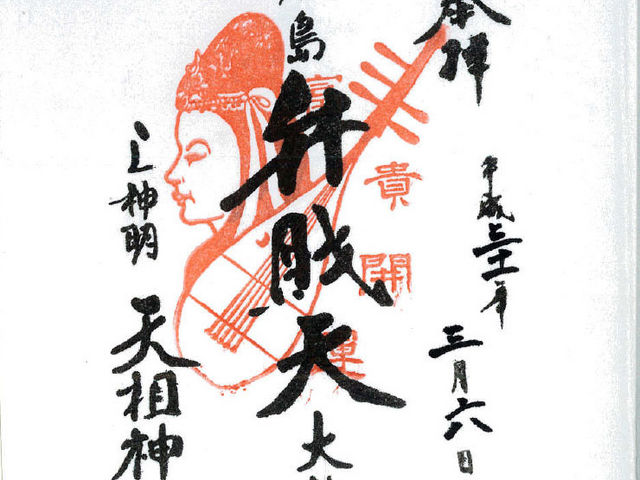 奉拝
平成三十一年
三月六日
富貴開運
島弁財天大
上神明天祖神